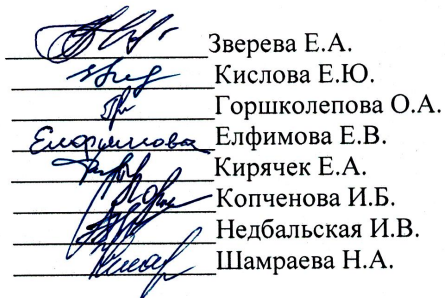 Зверева Е.А.
Кислова Е.Ю.
Горшколепова О.А.
Елфимова Елфимова Е.В.
Кирячек Е.А.
Копченова И.Б.
Недбальская И.В.
Шамраева Н.А.